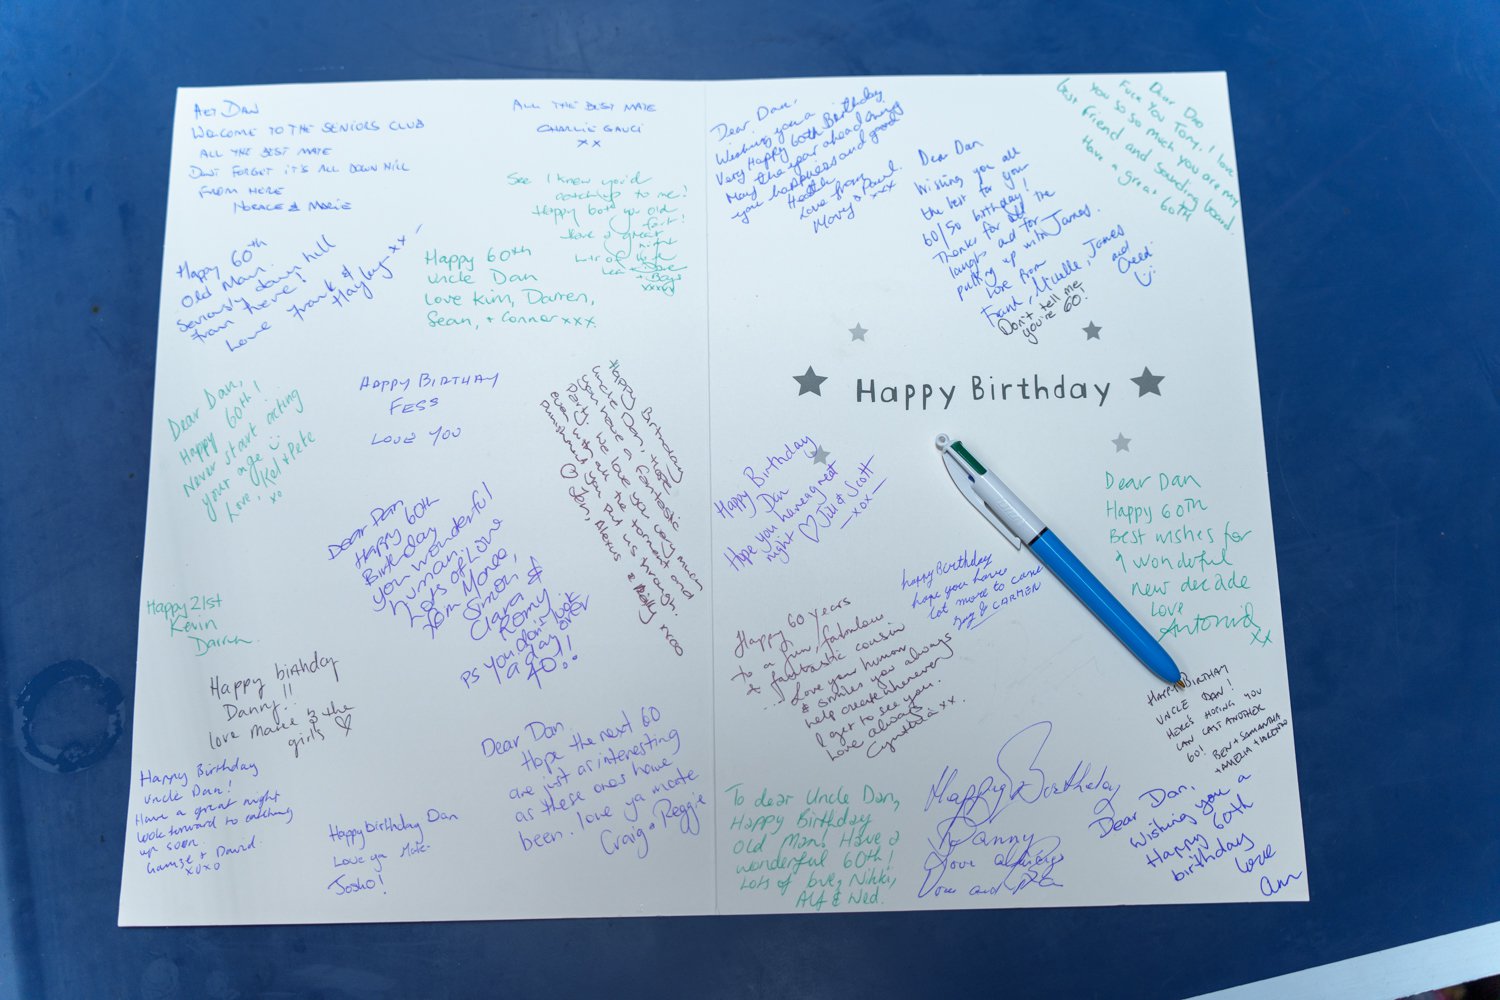 HEY DAN
WELCOME TO THE SENIORS CLUB
ALL THE BEST MATE
DON'T FORGET IT'S ALL DOWN HILL
FROM HERE
HORACE & MARIE
ALL THE BEST MATE
CHARLIE GAUCI
XX
See I knew you'd
catch up to me!
Happy 60th you old
fart!
Have a great
night
Lots of love
Lea + Dave
+ Boys
xxxx
Happy 60th
Old Man.
Seriously down hill
from here!
Love Frank &
Hayley xx
Happy 60th
uncle Dan
Love Kim, Darren,
Sean, + Connor xxx
Dear Dan,
Happy 60th!
Never start acting
your age
Love, Kel + Pete
xo
HAPPY BIRTHAY
FESS
LOVE YOU
Happy Birthday
Uncle Dan, hope
you have a fantastic
party. We love you very much
even with all the torment and
punishment you put us through.
♡ Jen, Alexis & Milly xxoo
Dear Dan
Happy 60th
Birthday
you wonderful
human.
Lots of Love
Simon &
Clara
Romy
PS You don't look
a day over
40!!
Happy 21st
Kevin
Darren
Happy birthday
Danny!!
love Marie & the
girls ♡
Happy Birthday
Uncle Dan!
Have a great night
Look forward to catching
up soon
+ David
xoxo
Happy birthday Dan
Love ya Mate
Josko!
Dear Dan,
Hope the next 60
are just as interesting
as these ones have
been. love ya mate
Craig & Reggie
Dear Dan,
Wishing you a
Very Happy 60th Birthday
May the year ahead bring
you happiness and good
Health
Love from
Mary & Paul.
xxx
Dear Dan
Wishing you all
the best for your
60/50 birthday!
Thanks for all the
laughs and for
putting up with James.
Love from
Frank, Michelle, James
and
Creed
Don't tell me
you're 60!
Dear Dad
Fuck You Tony. I love
you so so much you are my
best friend and sounding board.
Have a great 60th
Happy Birthday
Happy Birthday
Dan
Hope you have a great
night ♡ Jill & Scott
—xox—
happy Birthday
hope you have
lot more to came
Joy & CARMEN
Dear Dan
Happy 60th
Best wishes for
a wonderful
new decade
Love
Antonia
xx
Happy 60 years
to a fun, fabulous
& fantastic cousin
... Love your humour
& smiles you always
help create whenever
I get to see you.
Love always
Cynthia xx.
HAPPY BIRTHAY
UNCLE DAN!
HERE'S HOPING YOU
CAN LAST ANOTHER
60!
BEN + SAMANTHA
+ AMELIA + VALENTINO
To dear Uncle Dan,
Happy Birthday
Old Man! Have a
wonderful 60th!
Lots of love, Nikki,
Alf & Ned.
Happy Birthday
Danny
Love always
Dear Dan,
Wishing you a
Happy 60th
birthday
love
Ann